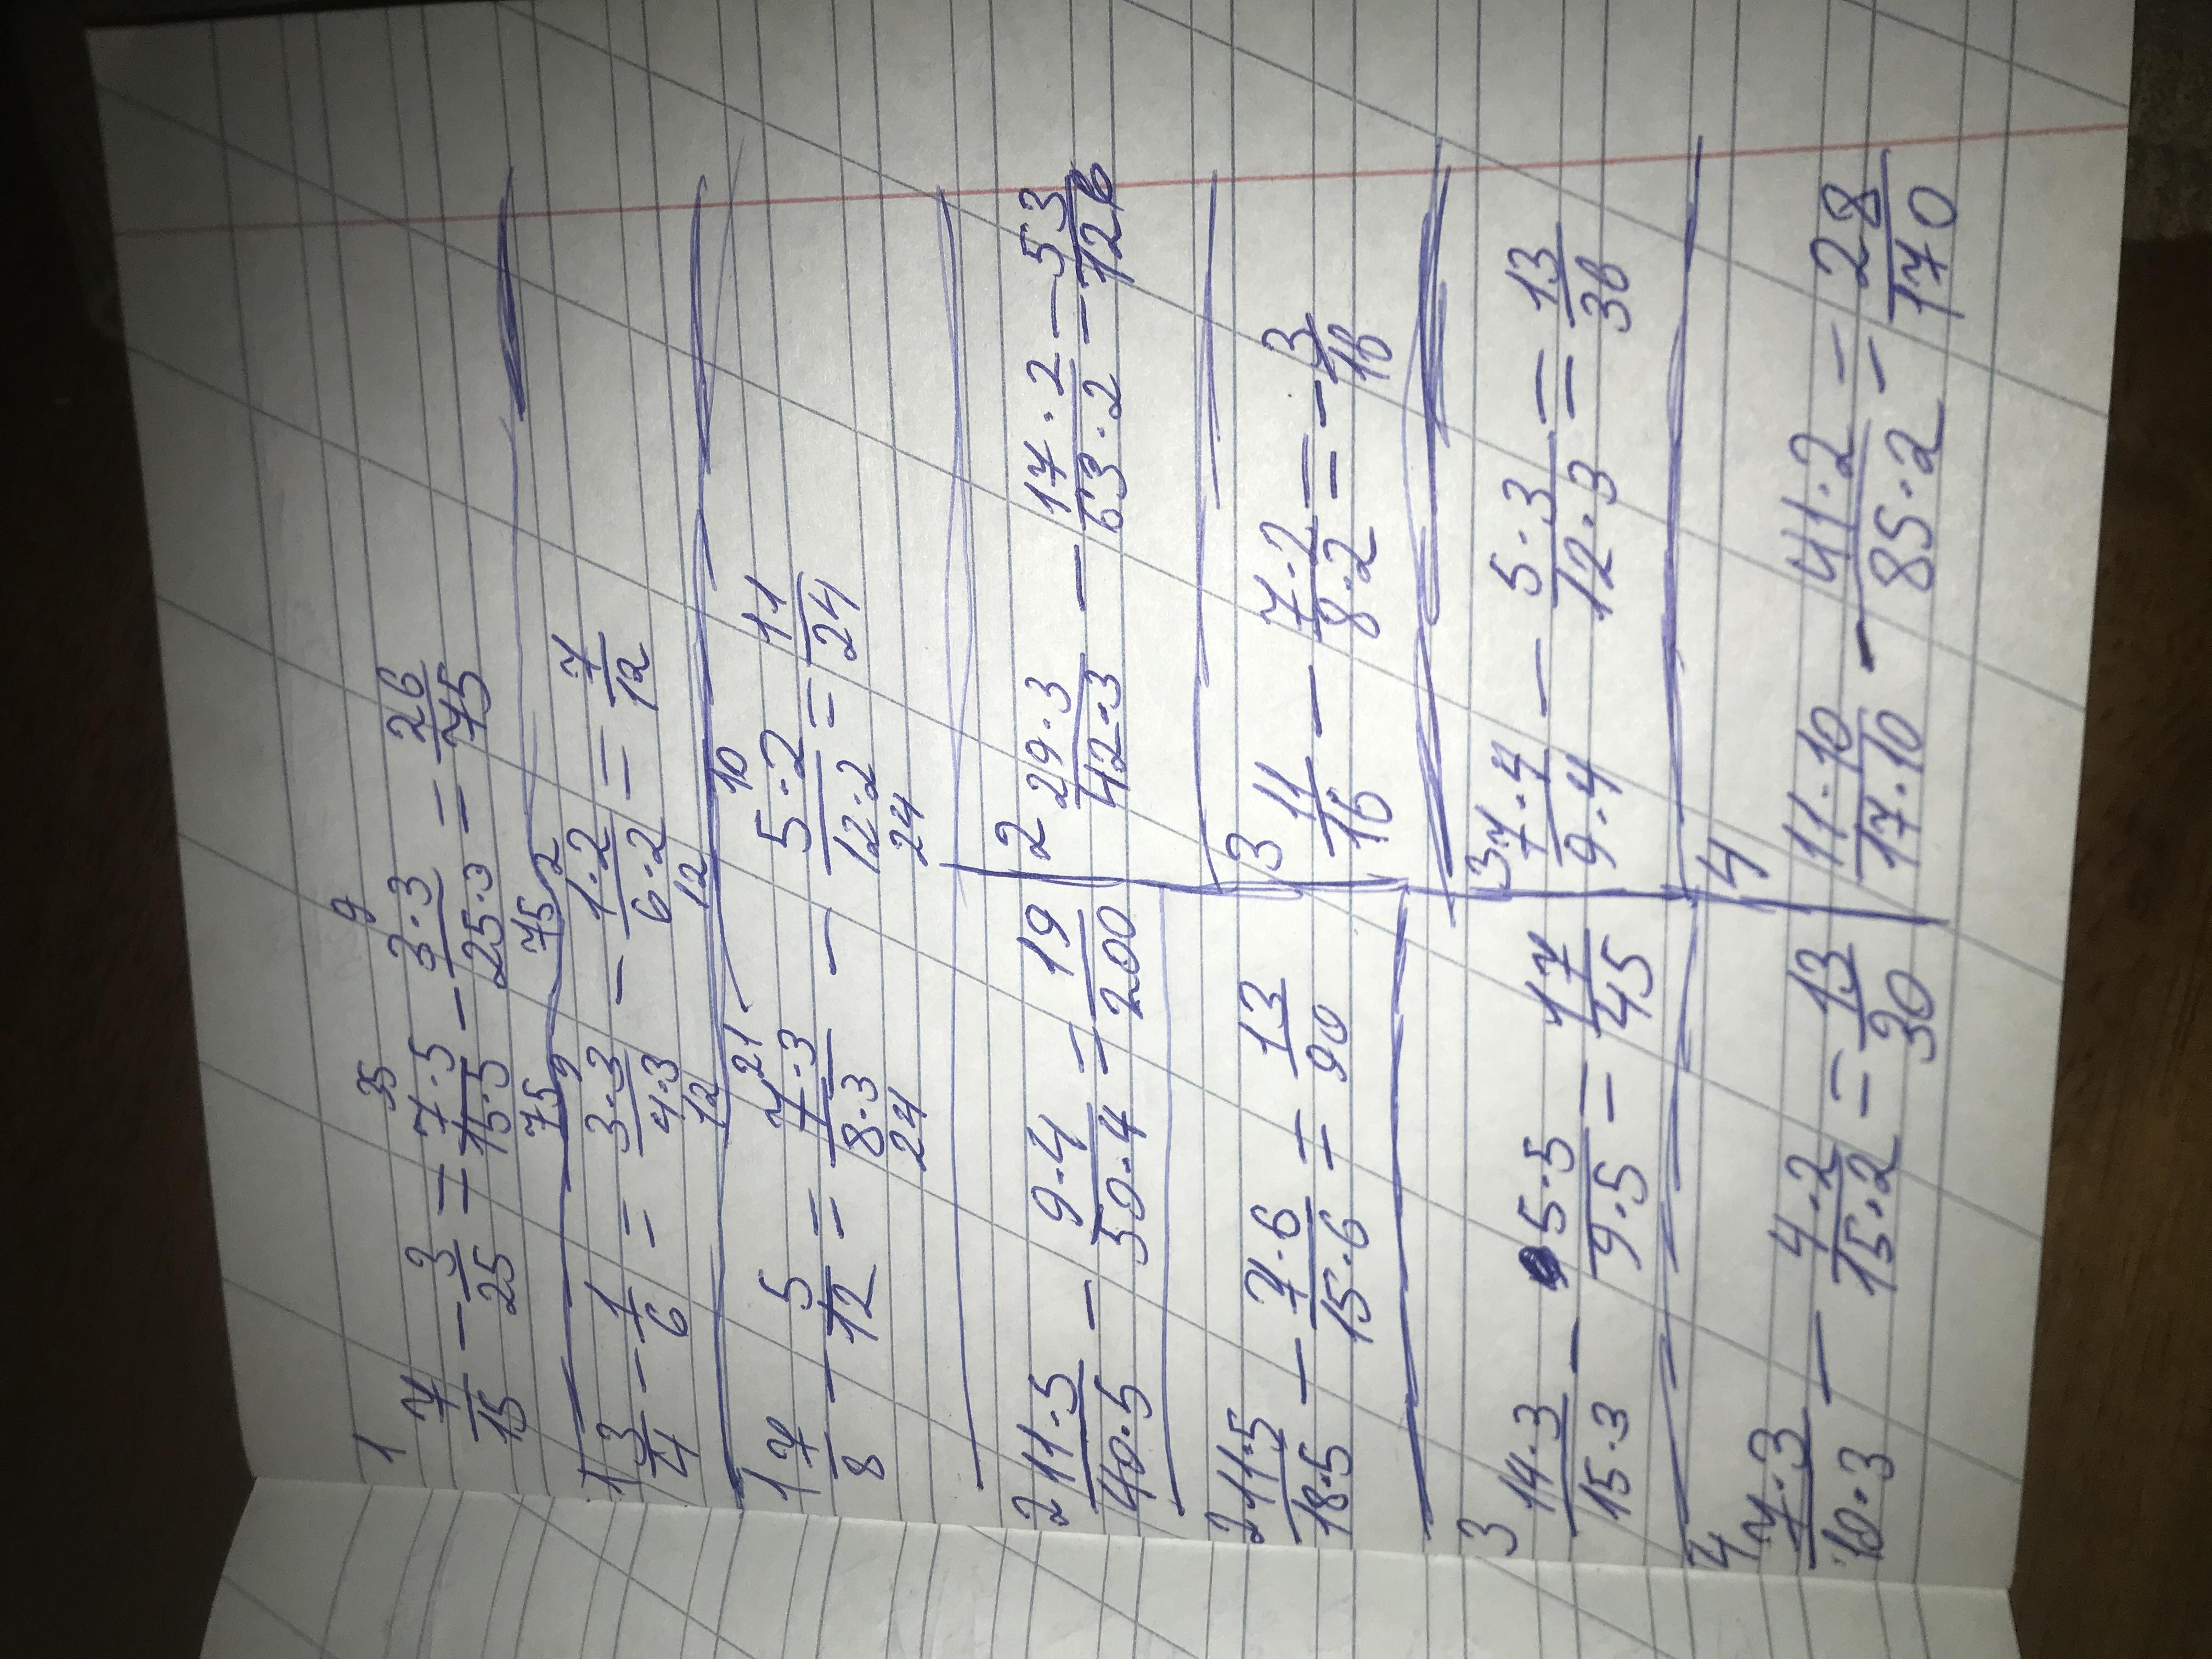 1
7/15 - 3/25 = 7·5/15·5 - 3·3/25·3 = 26/75
35 9
75 75
1 3/4 - 1/6 = 3·3/4·3 - 1·2/6·2 = 7/12
9 2
12 12
1 7/8 - 5/12 = 7·3/8·3 - 5·2/12·2 = 11/24
21 10
24 24
2 11·5/40·5 - 9·4/50·4 = 19/200
2 29·3/42·3 - 17·2/63·2 = 53/126
2 11·5/18·5 - 7·6/15·6 = 13/90
3 11/16 - 7·2/8·2 = - 3/16
3 14·3/15·3 - 5·5/9·5 = 17/45
3 7·4/9·4 - 5·3/12·3 = 13/36
4 7·3/10·3 - 4·2/15·2 = 13/30
4 11·10/17·10 - 41·2/85·2 = 28/170